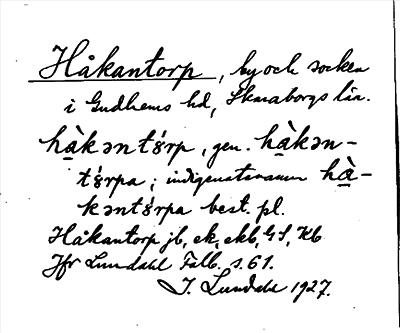 Håkantorp, by och socken
i Gudhems hd, Skaraborgs län.
hàkəntɤ́rp, gen. hàkən-
tɤ́rpa; indigenatsnamn hà-
kəntɤ́rpa best. pl.
Håkantorp jb, ek, ekb, GS, Kb
Jfr Lundahl Falb. s. 61.
I. Lundahl 1927.